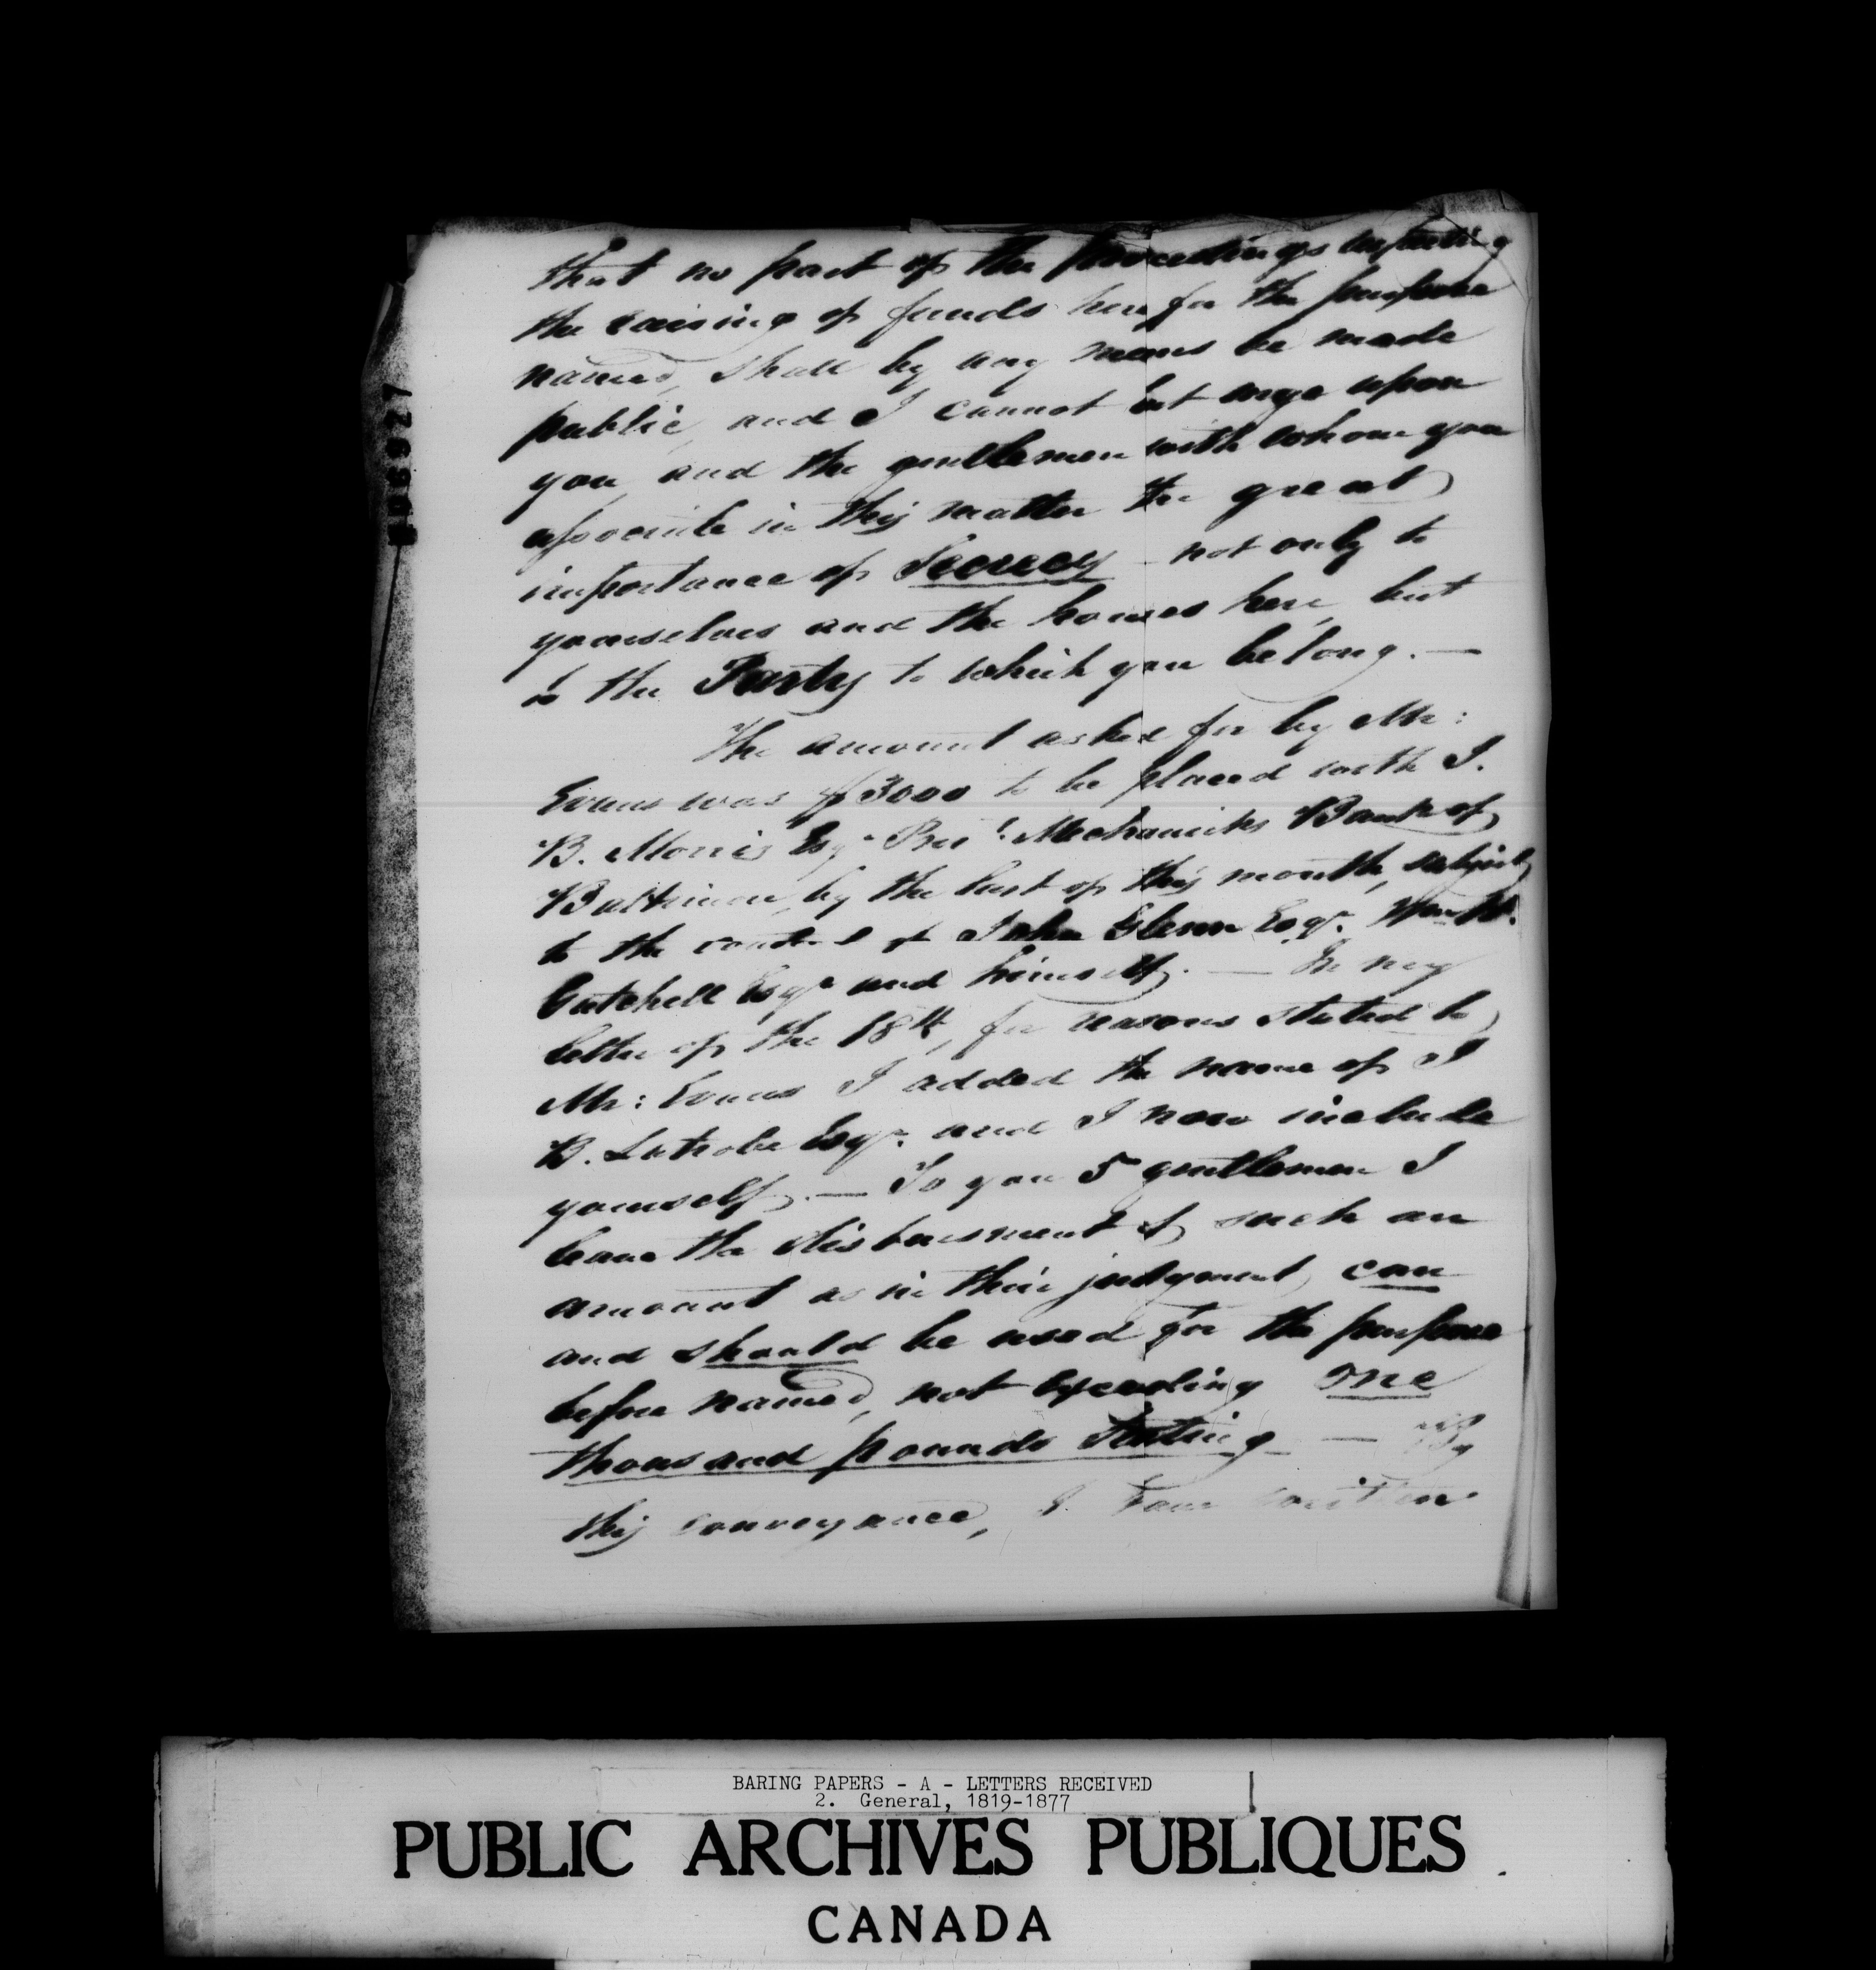 that no part of the proceedings respecting
the raising of funds here for the purpose
named, shall by any means be made
public, and I cannot but urge upon
you and the gentlemen with whom you
associate in this matter the great
importance of Secrecy not only to
yourselves and the houses here, but
to the Party to which you belong. —
The amount asked for by Mr:
Evans was $3000 to be placed with J.
B. Morris Esqr Prest. Mechanicks Bank of
Baltimore, by the last of this month, subject
to the control of John Glenn Esqr. Wm H.
Gatchell Esqr and himself. — In my
letter of the 18th, for reasons stated to
Mr: Evans I added the name of J
B. Latrobe Esqr. and I now include
yourself. — To you 5 gentlemen I
leave the disbursment of such an
amount as in their judgment, can
and should be used for the purpose
before named, not exceeding one
thousand pounds Sterling — By
this conveyance, I have written
BARING PAPERS - A - LETTERS RECEIVED
2. General, 1819-1877
PUBLIC ARCHIVES PUBLIQUES
CANADA